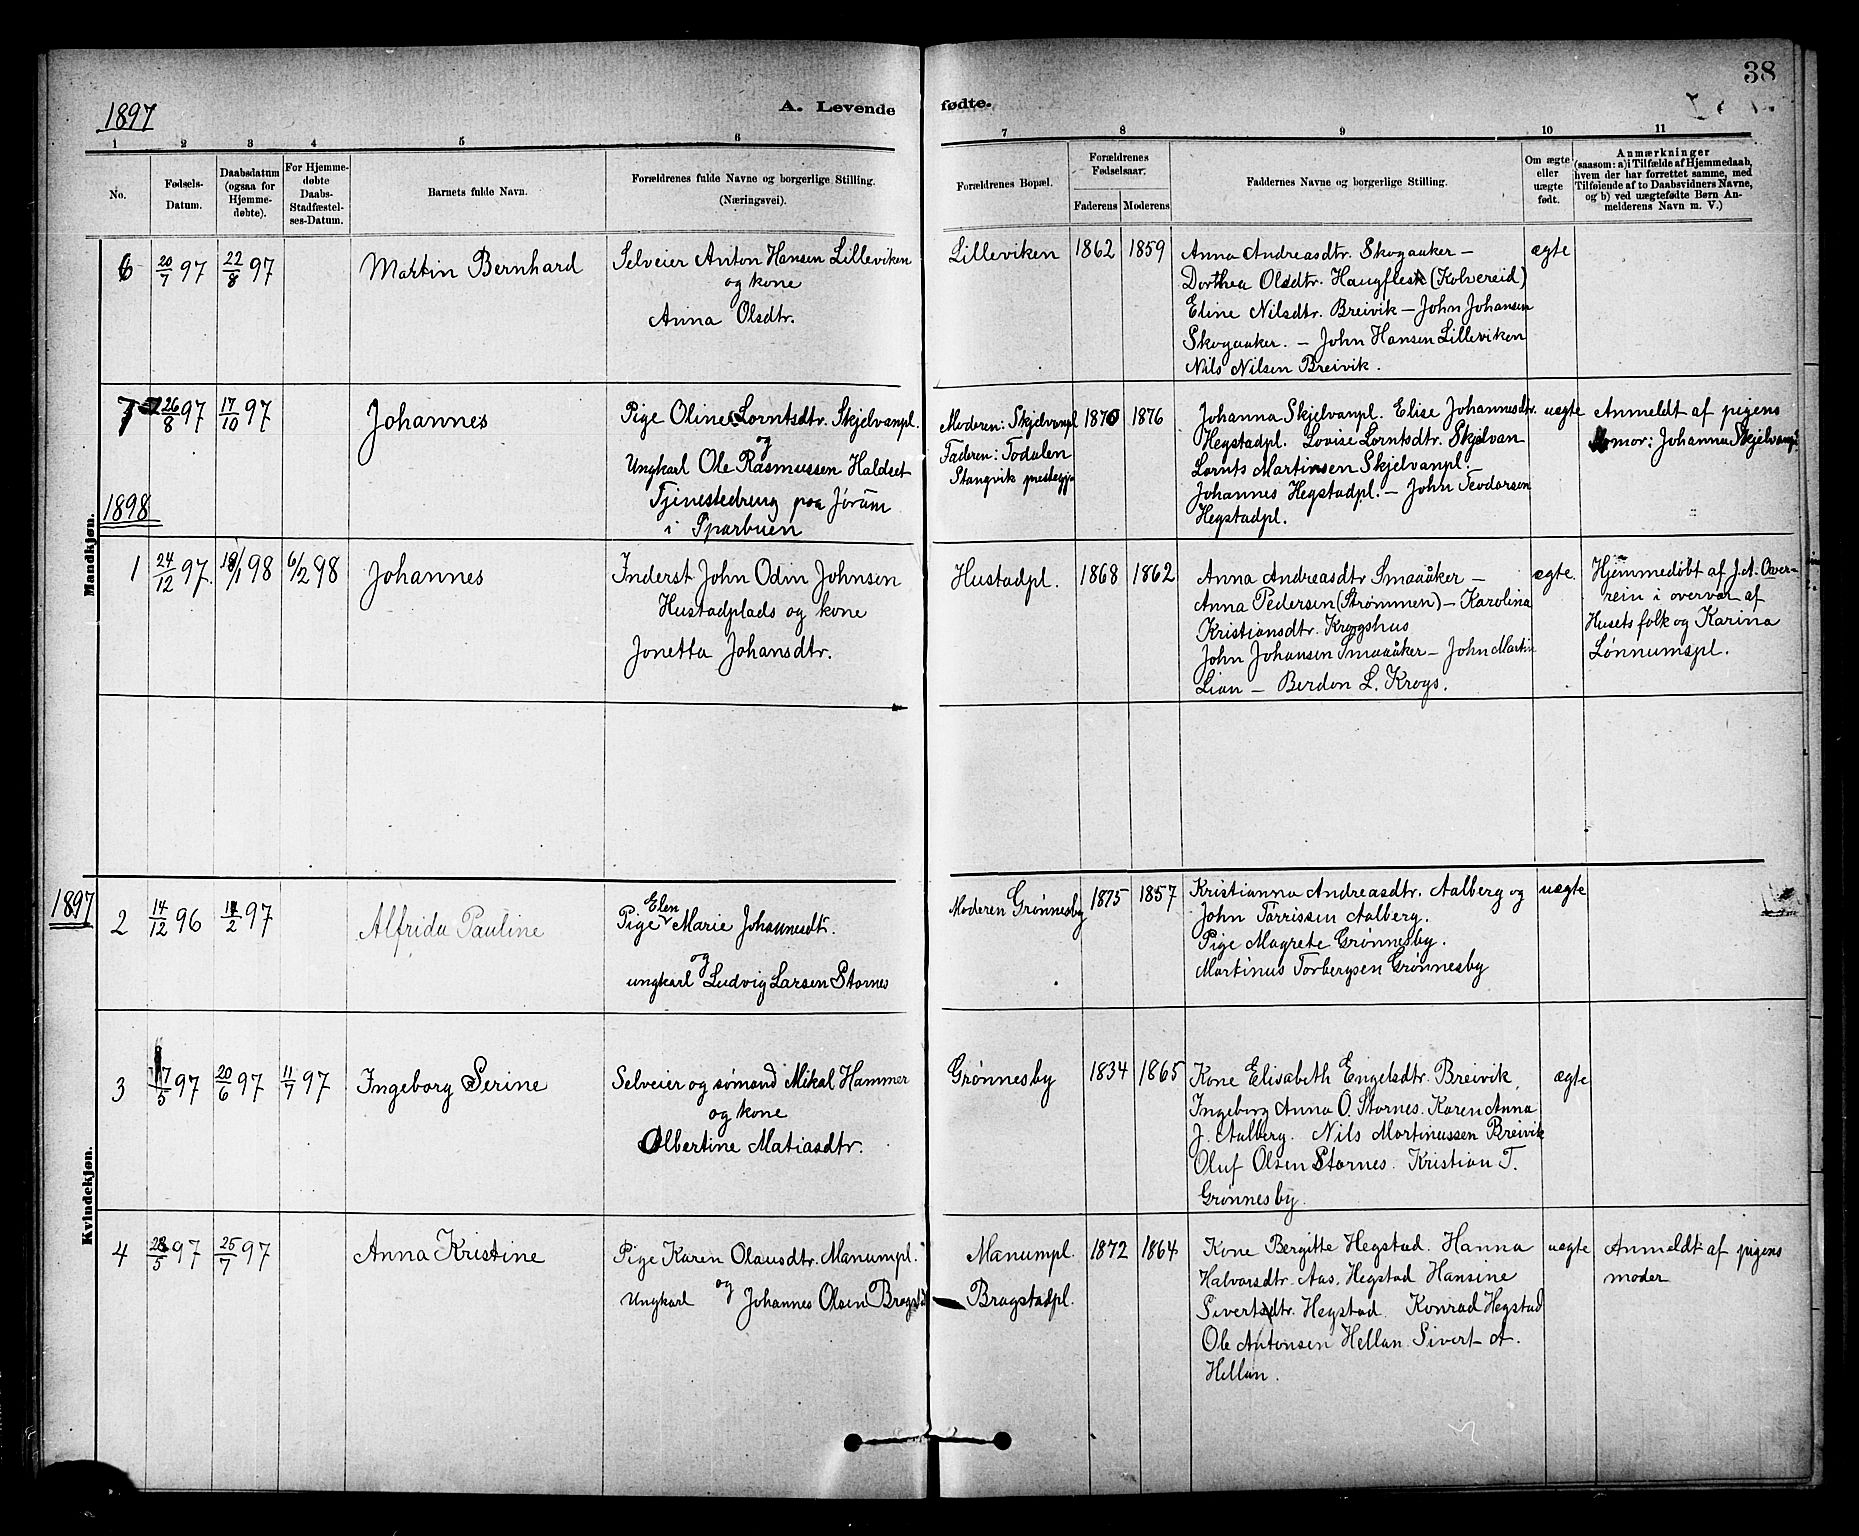 38
1897
A. Levende fødte.
1 2 3 4 5 6 7 8 9 10 11
No.
Fødsels-
Datum.
Daabsdatum
(ogsaa for
Hjemme-
døbte).
For Hjemme-
døbte
Daabs-
Stadfæstel-
ses-Datum.
Barnets fulde Navn.
Forældrenes fulde Navne og borgerlige Stilling.
(Næringsvei).
Forældrenes Bopæl.
Forældrenes
Fødselsaar.
Faderens Moderens
Faddernes Navne og borgerlige Stilling.
Om ægte
eller
uægte
født.
Anmærkninger
(saasom: a) i Tilfælde af Hjemmedaab,
hvem der har forrettet samme, med
Tilføiende af to Daabsvidners Navne,
og b) ved uægtefødte Børn An-
melderens Navn m. V.)
Mandkjøn.
6 20/7 97 22/8 97 Martin Bernhard
Selveier Anton Hansen Lilleviken
og kone
Anna Olsdtr.
Lilleviken 1862 1859
Anna Andreasdtr. Skogaaker —
Dorthea Olsdtr. Haugflesk (Kolvereid)
Eline Nilsdtr. Breivik — John Johansen
Skogaaker. — John Hansen Lilleviken
Nils Nilsen Breivik.
ægte
7 26/8 97 17/10 97 Johannes
Pige Oline Lorntsdtr. Skjelvanpl.
og
Ungkarl Ole Rasmussen Haldset
Tjenestedreng paa Jørum
i Sparbuen
Moderen: Skjelvanpl
Faderen: Todalen
Stangvik prestegj
1870 1876
Johanna Skjelvanpl. Elise Johannesdtr.
Hegstadpl. Lovise Lorntsdtr. Skjelvan
Lornts Martinsen Skjelvanpl.
Johannes Hegstadpl. — John Teodorsen
Hegstadpl.
uægte
Anmeldt af pigens
mor: Johanna Skjelvanpl.
1898
1 24/12 97. 18/1 98 6/2 98 Johannes
Inderst John Odin Johnsen
Hustadplads og kone
Jonetta Johansdtr.
Hustadpl. 1868 1862
Anna Andreasdtr Smaaåker —
Anna Pedersen (Strømmen) — Karolina
Kristiansdtr. Krogshus
John Johansen Smaaåker — John Martin
Lian — Berdon L. Krogs.
ægte.
Hjemmedøbt af J. A. Over-
rein i overvær af
Husets folk og Karina
Lønnumspl.
Kvindekjøn.
1897
2 14/12 96 /2 97 Alfrida Pauline
Elen
Pige Marie Johannesdt.
og
ungkarl Ludvig Larsen Stornes
Moderen Grønnesby 1875 1857
Kristianna Andreasdtr. Aalberg og
John Torrissen Aalberg.
Pige Magrete Grønnesby.
Martinus Torbergsen Grønnesby
uægte
3 17/5 97 20/6 97 11/7 97 Ingeborg Serine
Selveier og sømand Mikal Hammer
og kone
Olbertine Matiasdtr.
Grønnesby 1834 1865
Kone Elisabeth Engelsdtr. Breivik,
Ingeborg Anna O. Stornes. Karen Anna
J. Aalberg. Nils Martinussen Breivik
Oluf Olsen Stornes. Kristian T.
Grønnesby.
ægte
4 28/5 97 25/7 97 Anna Kristine
Pige Karen Olausdtr. Manumpl.
og
Ungkarl Johannes Olsen Bragst
Manumpl.
Bragstadpl.
1872 1864
Kone Bergitte Hegstad. Hanna
Halvorsdtr. Aas. Hegstad Hansine
Sivertsdtr. Hegstad Konrad Hegstad
Ole Antonsen Hellan. Sivert A.
Hellan.
uægte
Anmeldt af pigens
moder